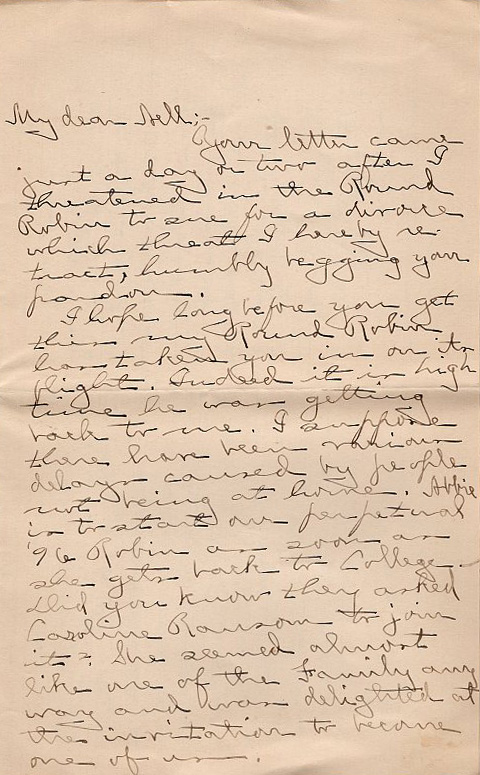 My dear Nell:-
Your letter came
just a day or two after I
threatened in the Round
Robin to sue for a divorce
which threat I hereby re-
tract, humbly begging your
pardon.
I hope long before you get
this my Round Robin
has taken you in on its
flight. Indeed it is high
time he was getting
back to me. I suppose
there have been various
delays caused by people
not being at home. Abbie
is to start our perpetual
'96 Robin as soon as
she gets back to College.
Did you know they asked
Caroline Ransom to join
it? She seemed almost
like one of the Family any
way and was delighted at
the invitation to become
one of us.